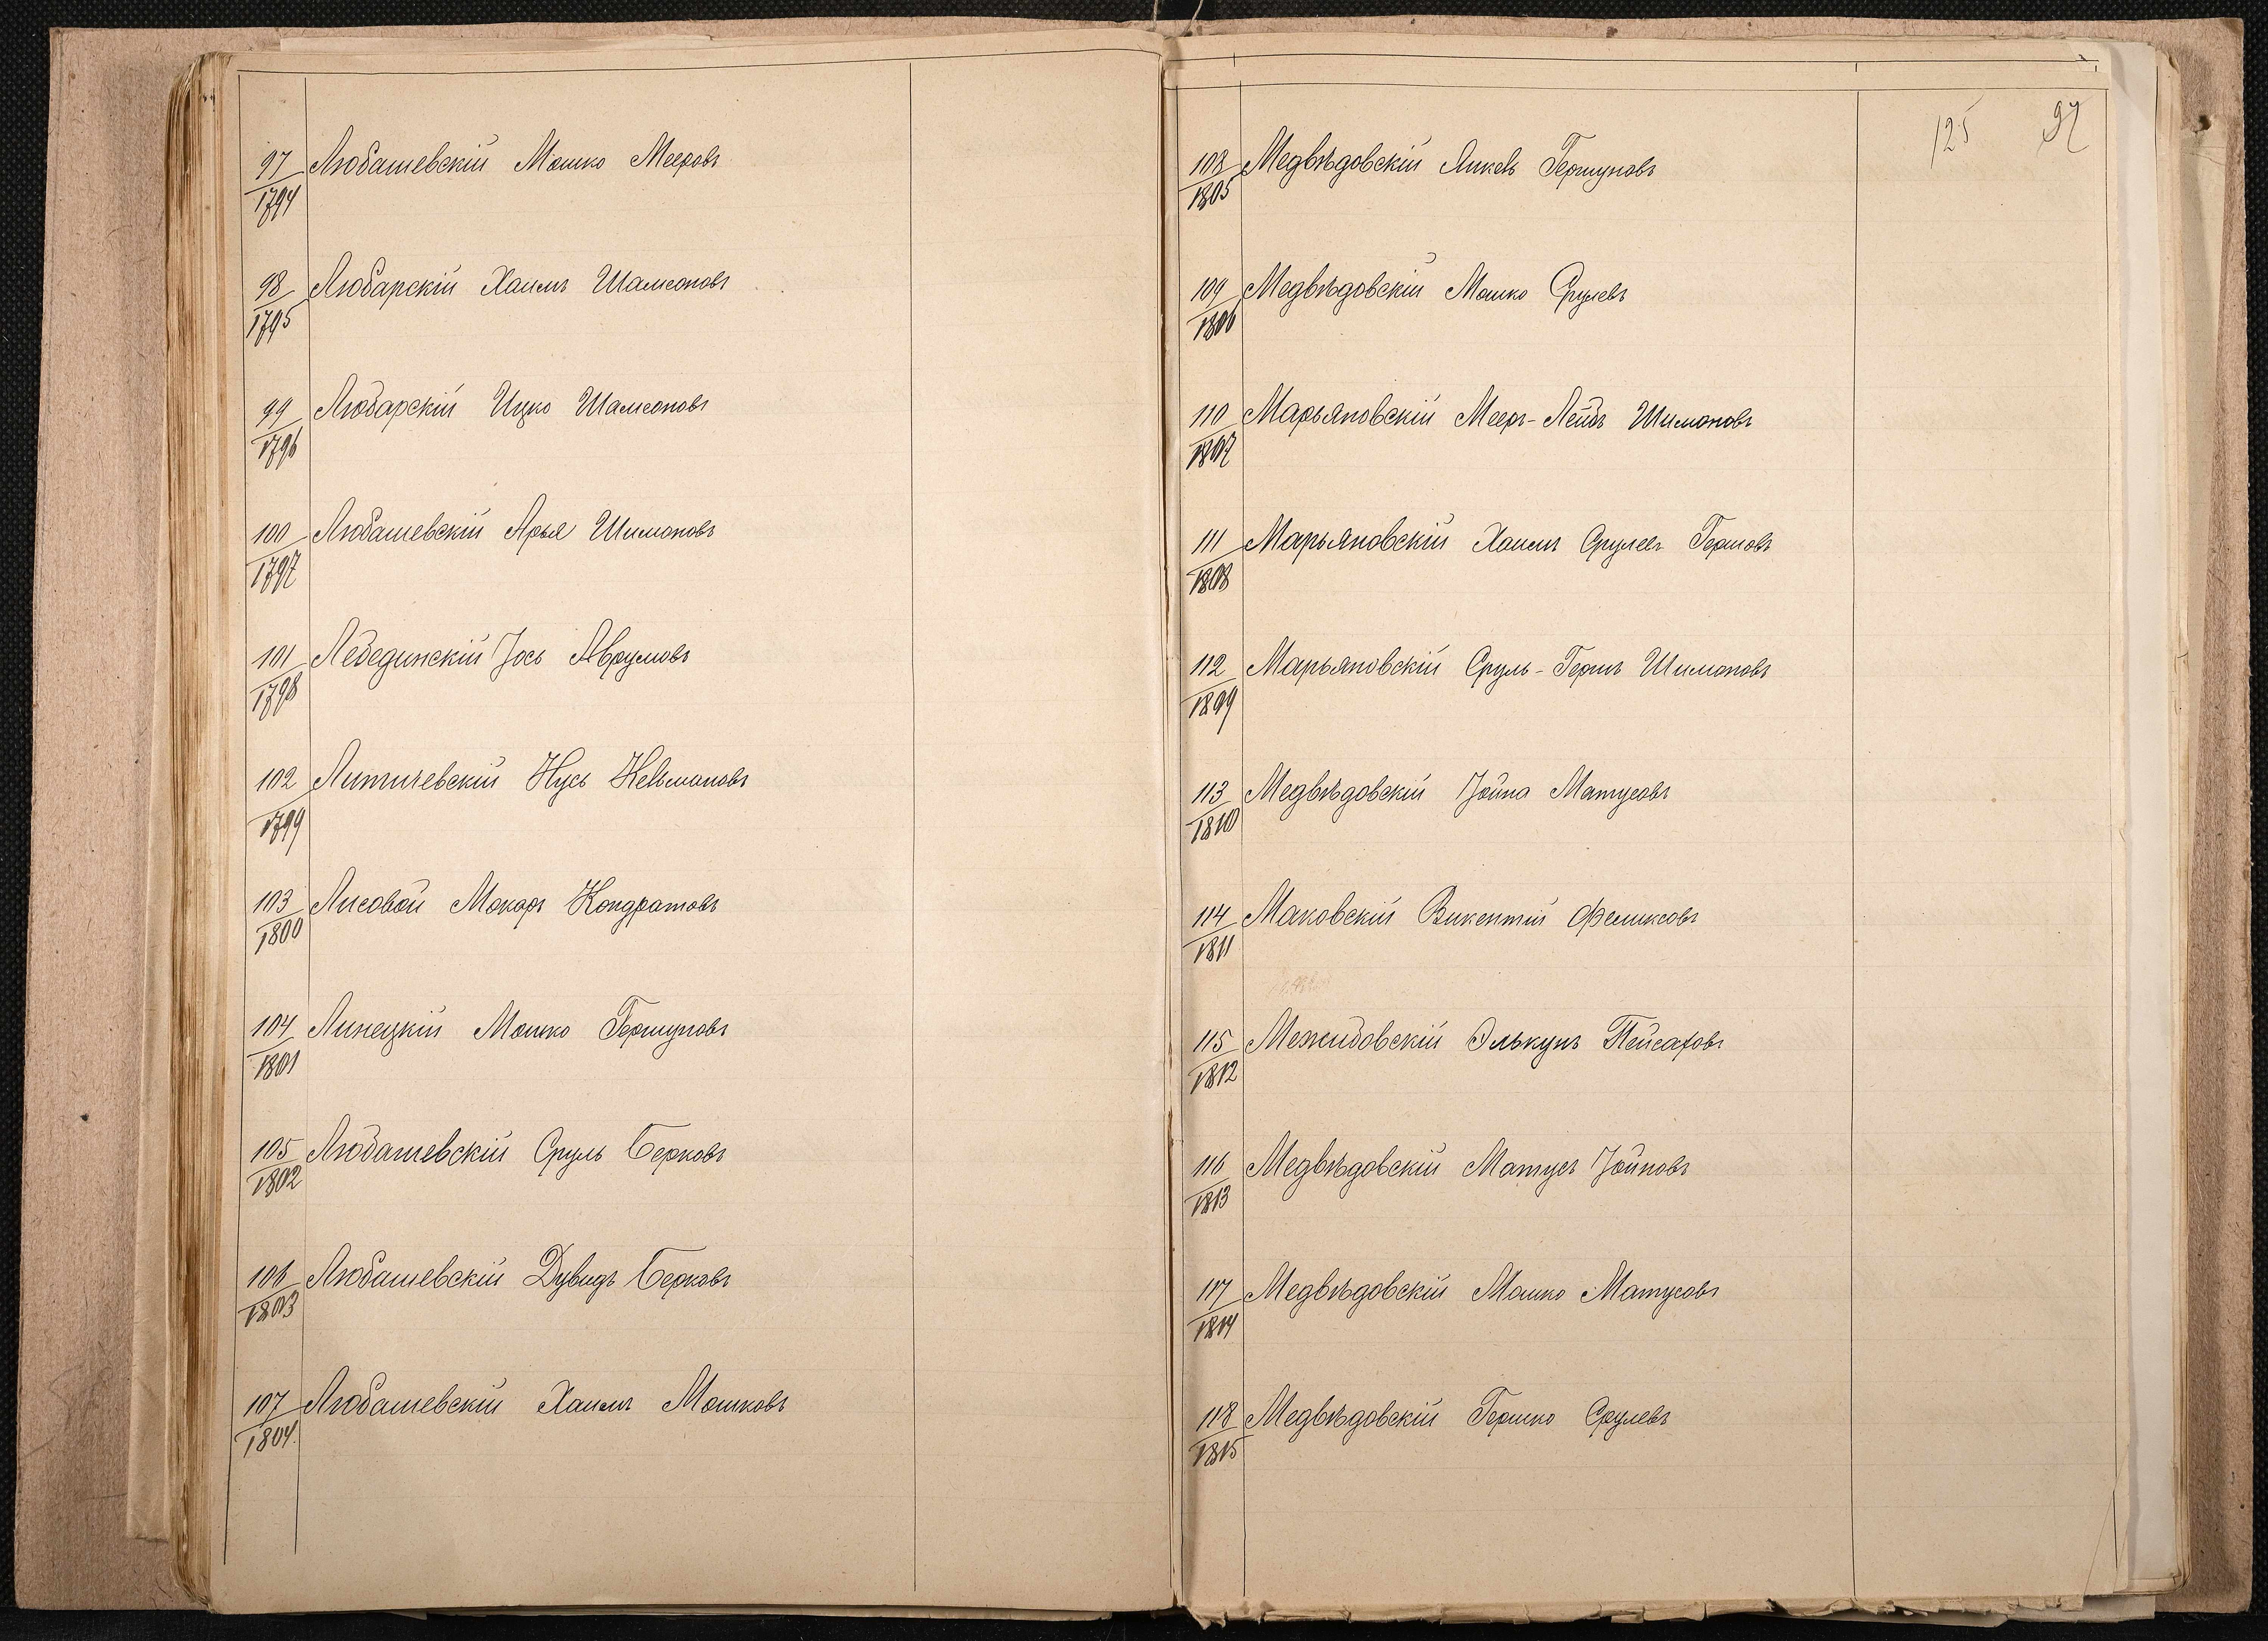 97 Любашевскій Мошко Мееровъ
1794
98 Любарскій Хаимъ Шамсоновъ
1795
99 Любарскій Ицко Шамсоновъ
1796
100 Любашевскій Арья Шимоновъ
1797
101 Лебединскій Іось Аврумовъ
1798
102 Литичевскій Нусь Кельмановъ
1799
103 Лисовой Макаръ Кондратовъ
1800
104 Линецкій Мошко Гершуновъ
1801
105 Любашевскій Сруль Берковъ
1802
106 Любашевскій Дувидъ Берковъ
1803
107 Любашевскій Хаимъ Мошковъ
1804.
125 97
108 Медвѣдовскій Янкель Гершуновъ
1805
109 Медвѣдовскій Мошко Срулевъ
1806
110 Марьяновскій Мееръ-Лейбъ Шимоновъ
1807
111 Марьяновскій Хаимъ Срулевъ Гершовъ
1808
112 Марьяновскій Сруль-Гершъ Шимоновъ
1809
113 Медвѣдовскій Іойна Матусовъ
1810
114 Маковскій Викентій Феликсовъ
1811
115 Межибовскій Элькунъ Пейсаховъ
1812
116 Медвѣдовскій Матусъ Іойновъ
1813
117 Медвѣдовскій Мошко Матусовъ
1814
118 Медвѣдовскій Гершко Срулевъ
1815